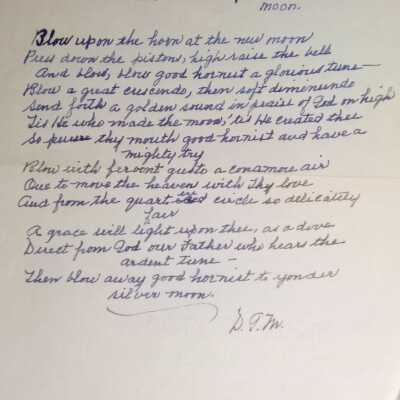 moon.
Blow upon the horn at the new moon
Press down the piston, high raise the bell
And blow, blow good hornist a glorious tune—
Blow a great crescendo, then soft demenuendo
Send forth a golden sound in praise of God on high
'Tis He who made the moon, 'tis He created thee
So purse thy mouth good hornist and have a
mighty try
Blow with fervent gusto a conamore air
One to move the heaven with Thy love
And from the quart circle so delicately
fair
A grace will light upon thee, as a dove
Direct from God our Father who hears the
ardent tune—
Then blow away good hornist to yonder
silver moon.
D. T. M.